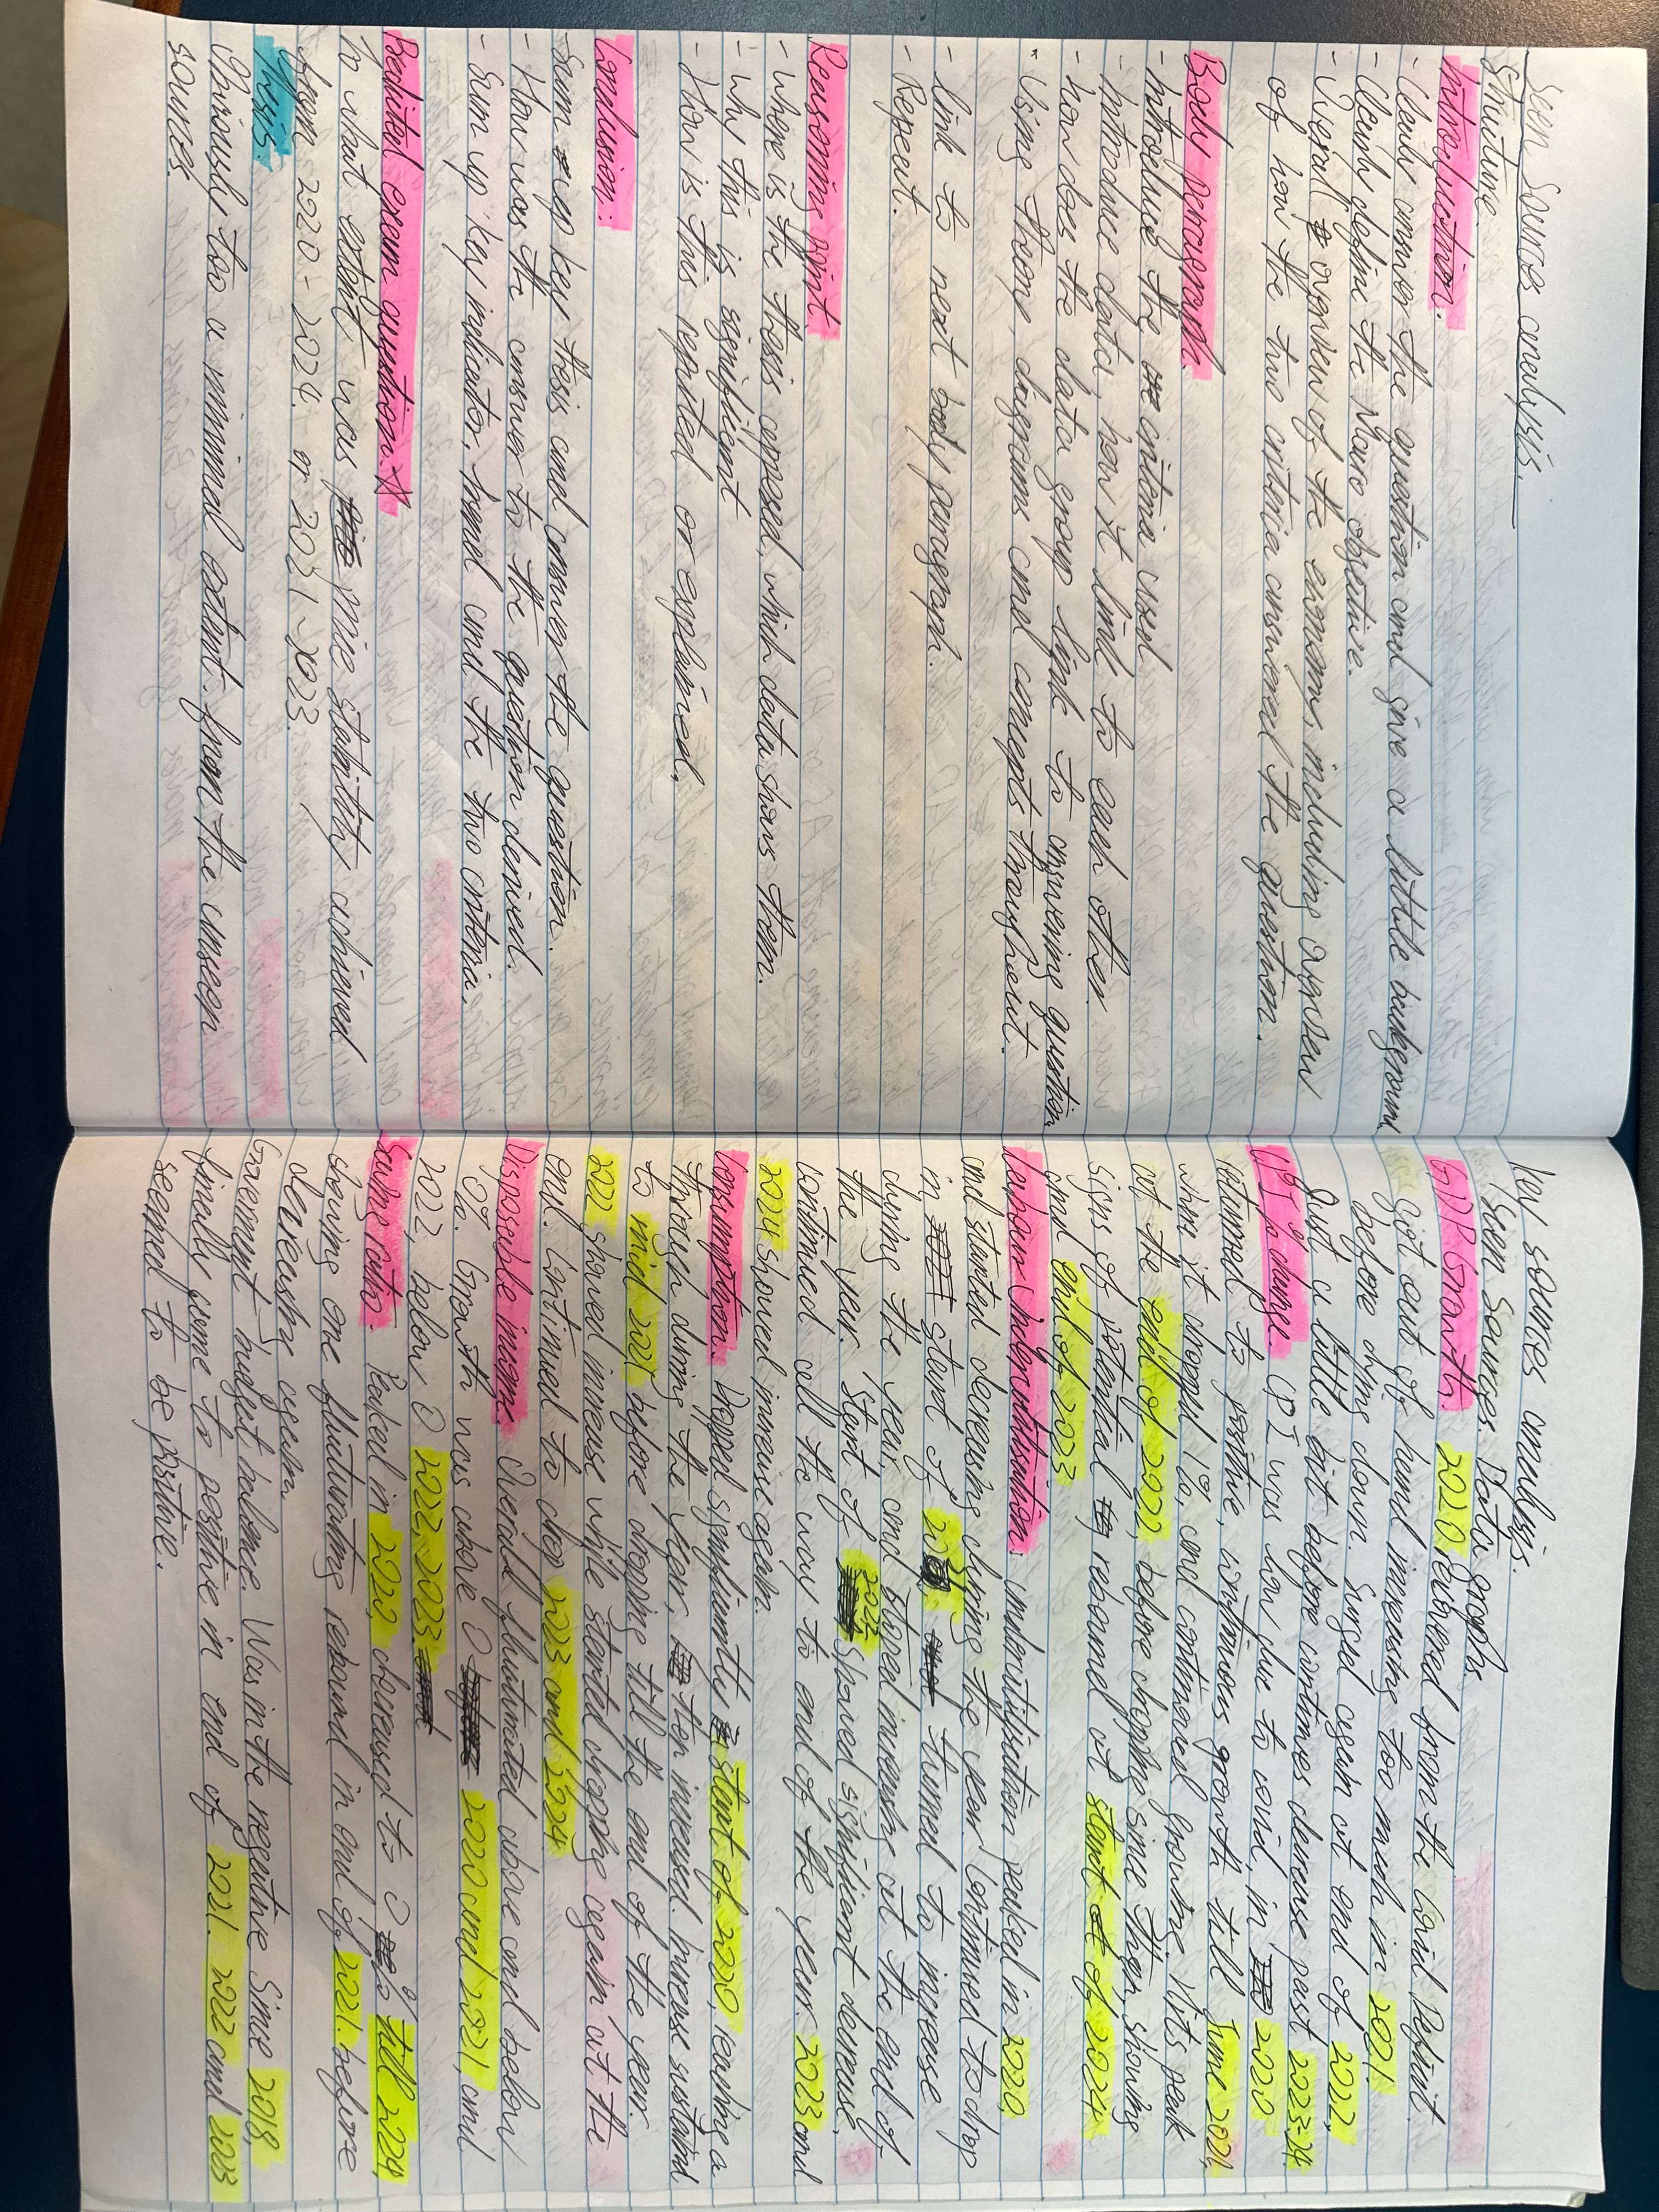 Seen Sources analysis.
Structure.
Introduction.
- Clearly answer the question and give a little background
- Clearly define the Macro objective.
- Overall overview of the economy, including overview
of how the two criteria answered the question.
Body paragraph.
- Introduce the criteria used.
- Introduce data, how it link to each other.
- how does the data group link to answering question
- Using theory, diagrams and concepts throughout.
- link to next body paragraph.
- Repeat.
Reasoning point.
- Where is the thesis opposed, which data shows them.
- Why this is significent
- How is this refuted or explained.
Conclusion:
- Sum up key thesis and answer the question.
- How was the answer to the question derived.
- Sum up key indicator, trend and the two criteria.
Predicted exam question.
To what extent was price stability achieved
from 2020 - 2024. or 2021 - 2023.
Thesis.
Obviously too a minimal extent, from the unseen
sources.
Key sources analysis.
Seen Sources. Data graphs
GDP Growth. 2020 recovered from the Covid Deficit.
Got out of hand increasing too much in 2021.
before dying down. Surged again at end of 2022,
Just a little bit before continues decrease past 2023-24
CPI % change. CPI was low due to covid, in 2020
returned to positive, continuous growth till June 2021,
where it dropped 1%, and continued growing. Hits peak
at the end of 2022, before dropping since then, showing
signs of potential rebound at start of 2024
and end of 2023
Labour underutilisation: underutilisation peaked in 2020,
and started decreasing during the year. Continued to drop
in start of turned to increase
during the year, and stopped increasing at the end of
the year. Start of 2022 showed significent decrease,
continued all the way to end of the year. 2023 and
2024 showed increase again.
Consumption. Dropped significantly start of 2020, reaching a
through during the year, then increased. Increase sustained
to mid 2021 before dropping till the end of the year.
2022 showed increase while started dropping again at the
end. Continued to drop 2023 and 2024
Disposable income. Overall fluctuated above and below
0%. Growth was above 0 2020 and 2021, and
2022, below 0 2022, 2023.
Saving ratio. Peaked in 2020, decreased to 0 % till 2024,
showing one fluctuating rebound in end of 2021. before
decreasing again.
Government budget balance. Was in the negative Since 2018,
finally came to positive in end of 2021. 2022 and 2023
seemed to be positive.